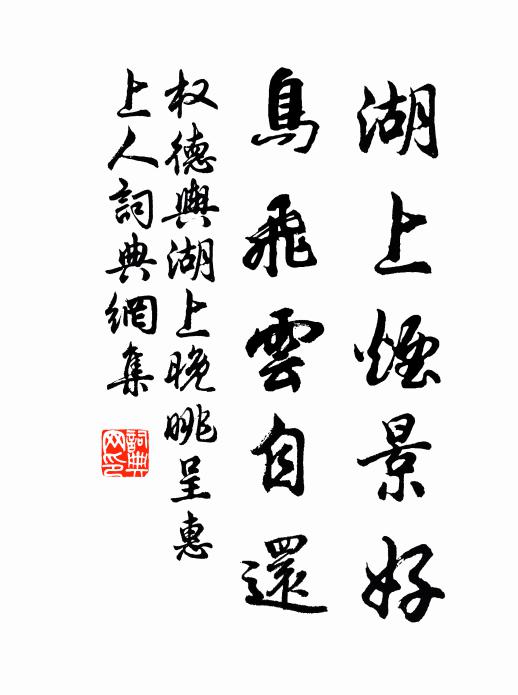 湖上煙景好
鳥飛雲自還
权德輿湖上晚眺呈惠
上人詞典網集
詞典
网印